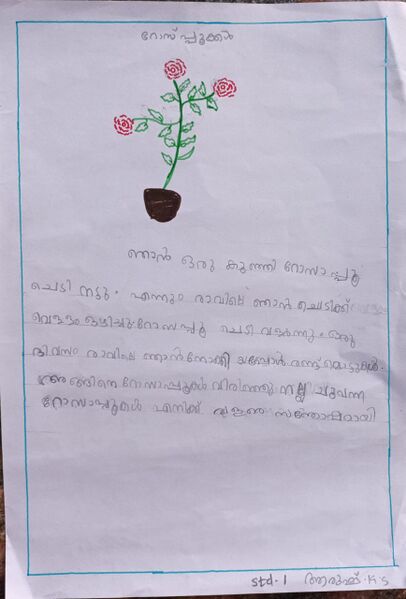 റോസ് പ്പൂക്കൾ
ഞാൻ ഒരു കുഞ്ഞി റോസാപ്പൂ
ചെടി നട്ടു. എന്നും രാവിലെ ഞാൻ ചെടിക്ക്
വെള്ളം ഒഴിച്ചു. റോസപ്പൂ ചെടി വളർന്നു. ഒരു
ദിവസം രാവിലെ ഞാൻ നോക്കി യപ്പോൾ മൊട്ടുകൾ.
അങ്ങിനെ റോസാപ്പൂകൾ വിരിഞ്ഞു നല്ല ചുവന്ന
റോസാപ്പൂകൾ എനിക്ക് വളരെ സന്തോഷമായി
std-1 ആരുഷ്.K.S